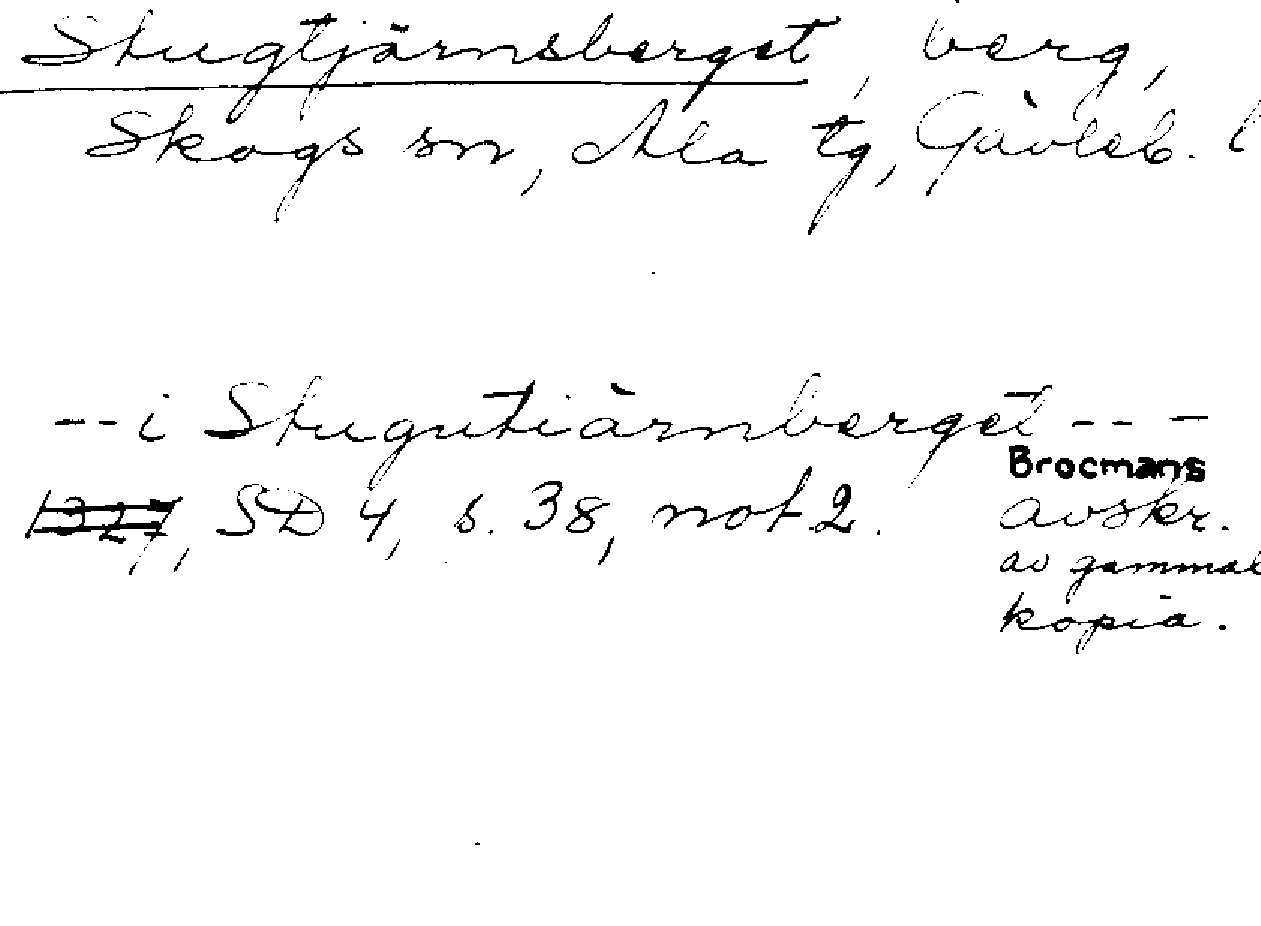 Stugtjärnsberget, berg,
Skogs sn, Ala tg, Gävleb. l
--i Stugutiärnberget---
1327, SD 4, s. 38, not 2.
Brocmans
avskr.
av gammal
kopia.